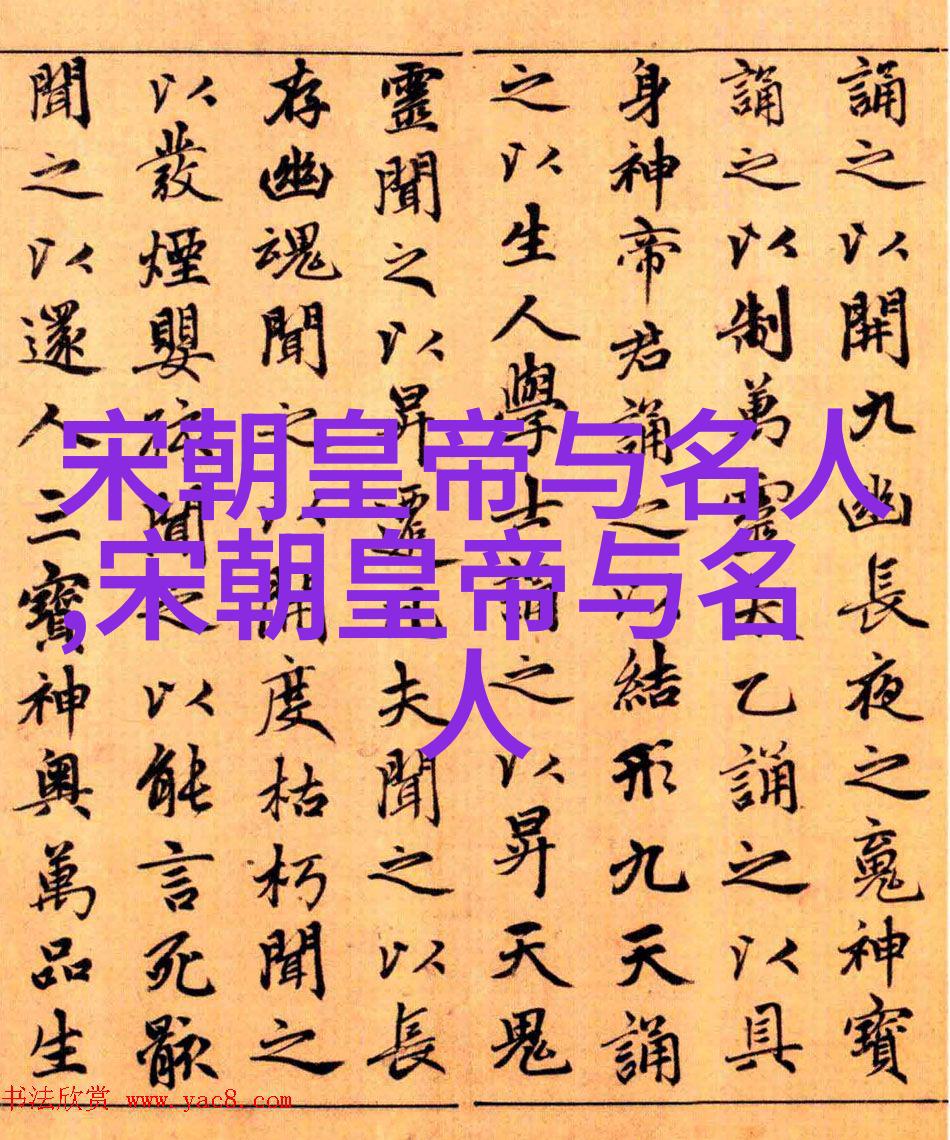 誦之以開九幽長夜之䰟神寶
誦之以制萬靈天乙誦之以具
身神帝君誦之以結形九天誦
之以生人學士誦之以昇天鬼
靈聞之以昇遷凡夫聞之以長
存幽魂聞之以開度枯朽聞之
以發煙嬰孩聞之以能言死骸
聞之以還人三寶神奥萬品生
宋朝皇帝与名人
,宋朝皇帝与名
人
书法欣赏 www.yac8.com